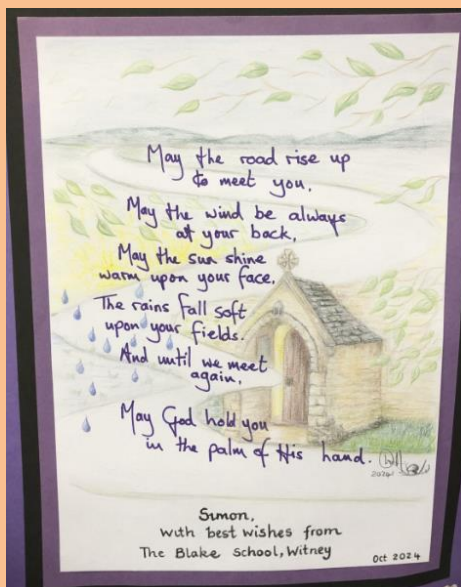 May the road rise up
to meet you.
May the wind be always
at your back,
May the sun shine
warm upon your face,
The rains fall soft
upon your fields.
And until we meet
again,
May God hold you
in the palm of His hand.
2024
Simon,
with best wishes from
The Blake School, Witney
Oct 2024